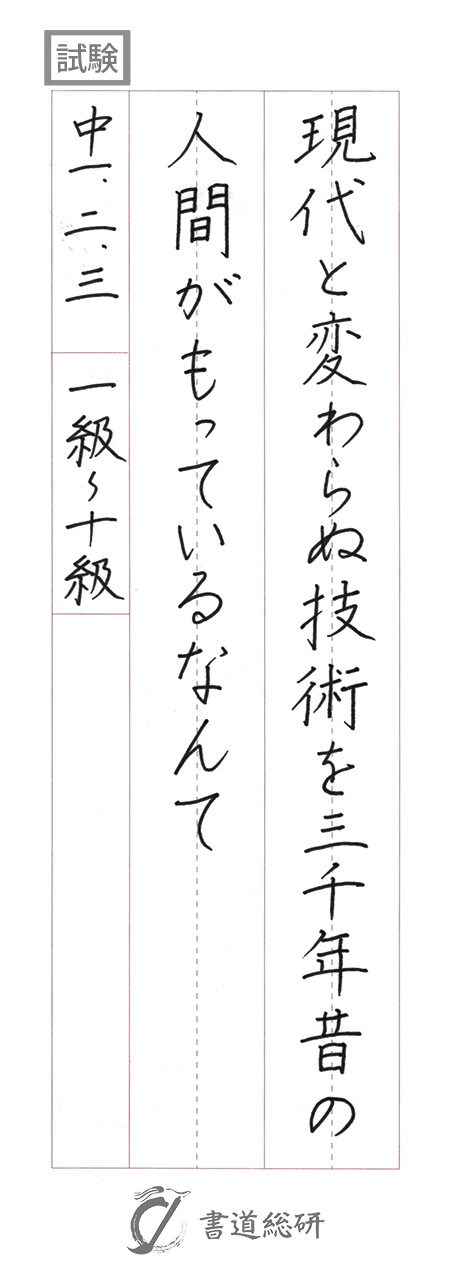 試験
現代と変わらぬ技術を三千年昔の
人間がもっているなんて
中一、二、三
一級〜十級
書道総研